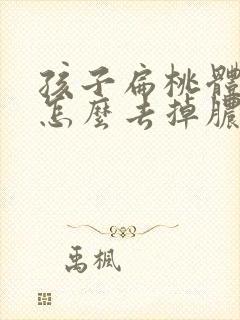 孩子扁桃體
怎麼去掉膿
禹楓